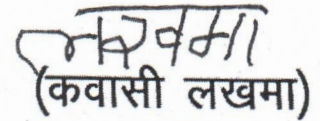 लखमा
(कवासी लखमा)